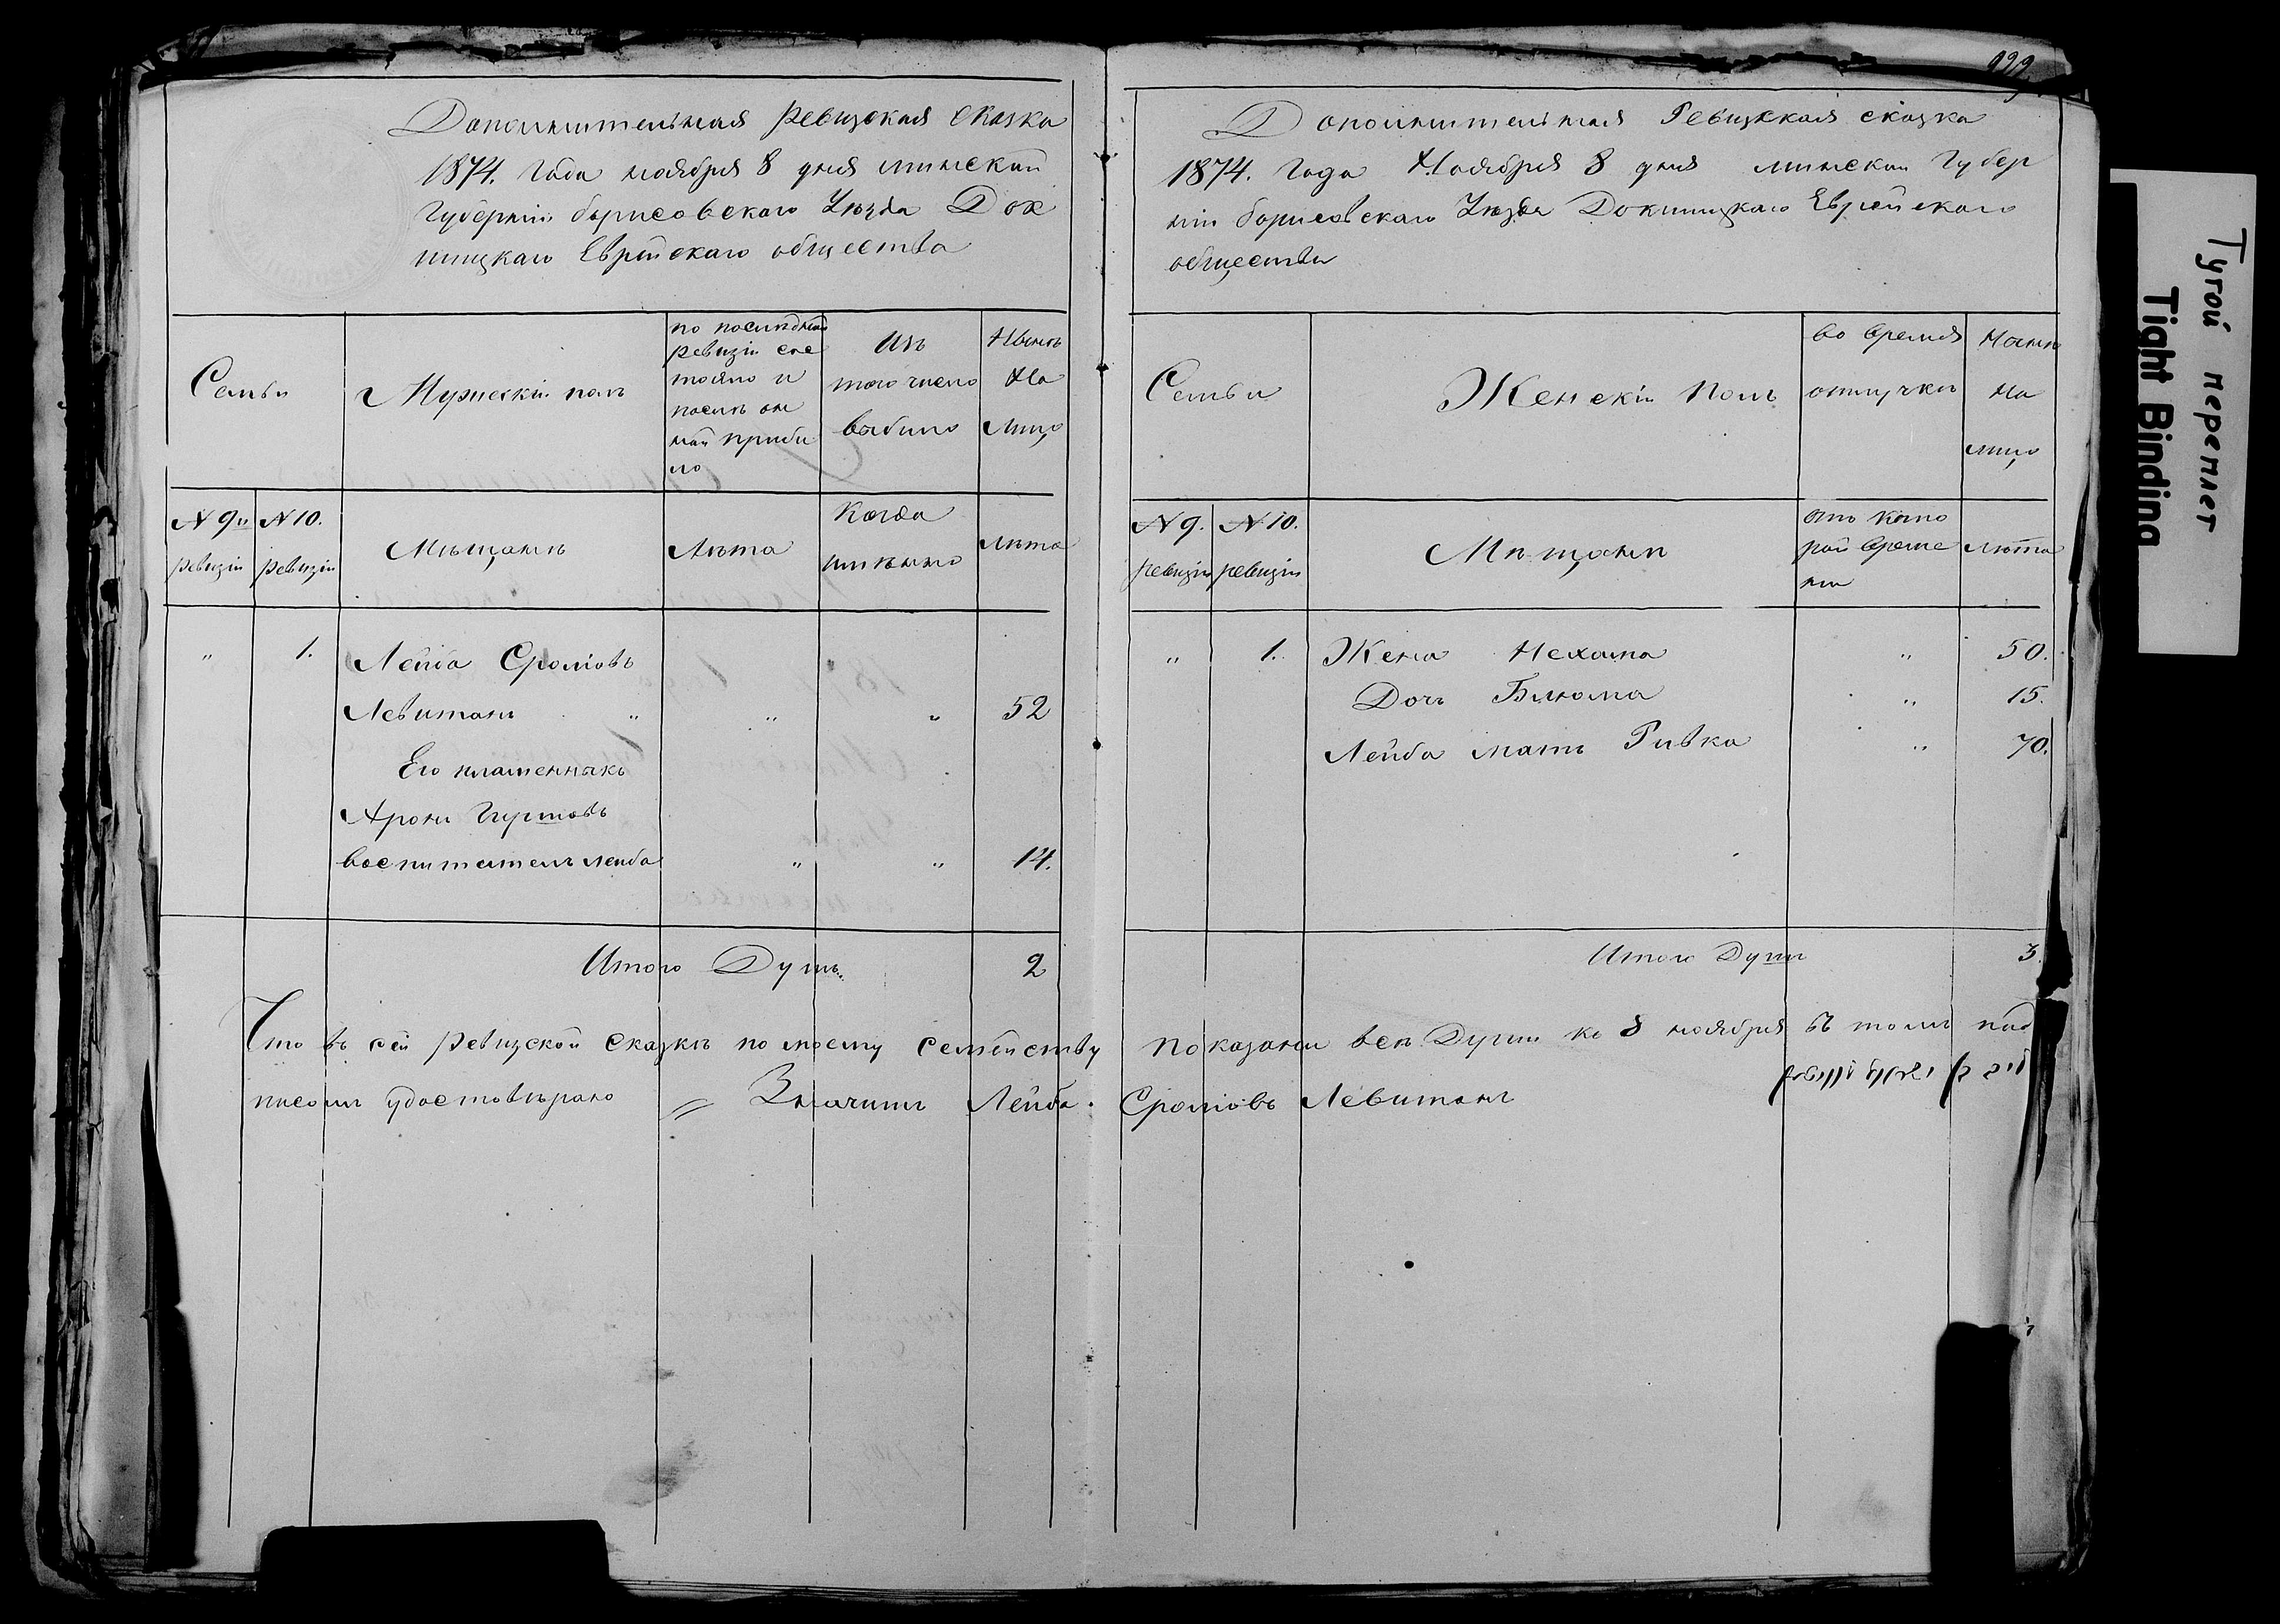 Дополнительная Ревизская Сказка
1874. Года ноября 8 дня минской
Губерніи борисовскаго Уезда Док
шицкаго Еврейскаго общества
Семьи
Мужескій полъ
по последней
ревизіи сос
тояло и
после он
ной прибы
ло
Изъ
того число
выбыло
Нынѣ
На
Лицо
N 9й
ревизіи
N 10.
ревизіи
Мѣщанѣ
Лѣта
Когда
имѣнно
лѣта
" 1. Лейба Сролiовъ
Левитанъ " " " 52
Его племенныкъ
Аронъ Гиршовъ
воспитателъ лейба " " 14.
Итого Душъ 2
199
Дополнительная Ревизкая сказка
1874. Года Ноября 8 дня минской Губер
ніи борисовскаго Уезда Докшицкаго Еврейскаго
общества
Семьи
Женскій Полъ
во время
отлучкѣ
Нынѣ
На
лицо
N 9.
ревизіи
N 10.
ревизіи
Мѣщанѣ
отъ кото
рой време
ни
лѣта
" 1. Жена Нехама " 50.
Дочъ Блюма " 15.
Лейба матъ Ривка " 70.
Итого Душъ 3.
Что въ сей ревизской сказкѣ по моему семейству показаны всѣ Души къ 8 ноября въ томъ под
писомъ удостовѣраю Значитъ Лейба Сролiовъ Левитанъ
Тугой переплет
Tight Binding